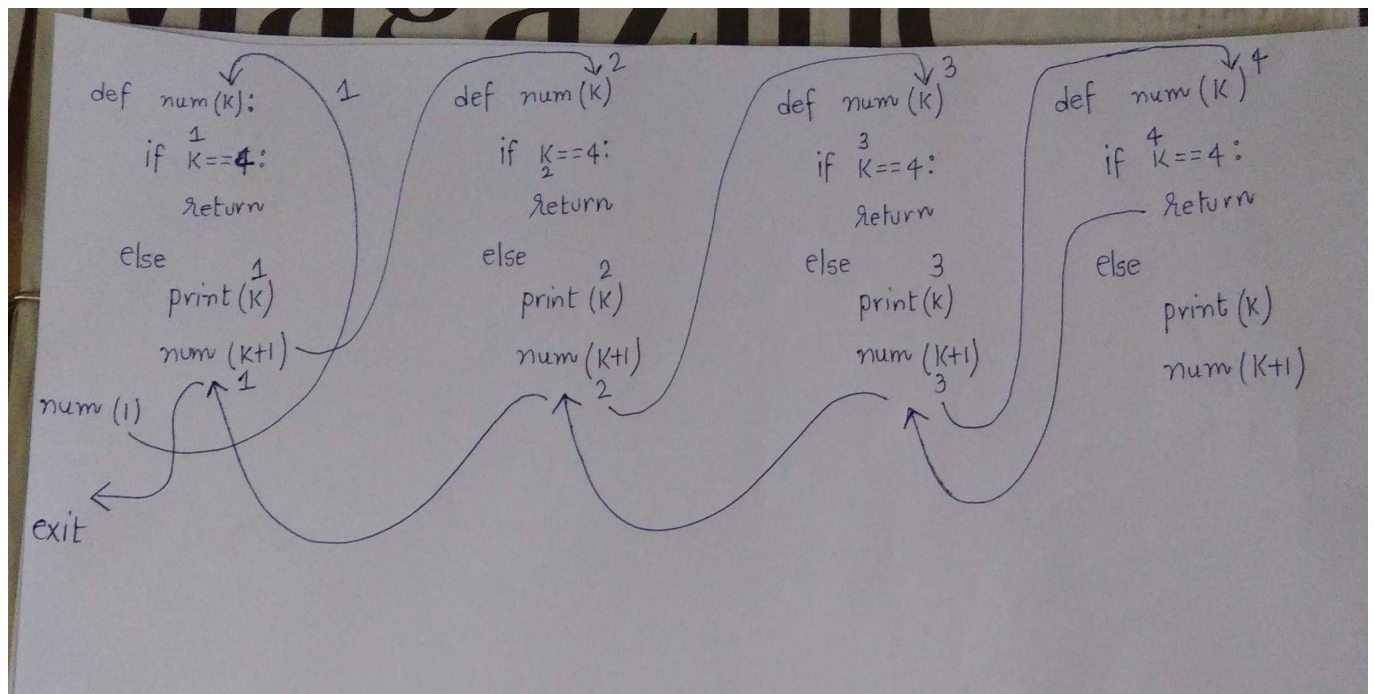 Magazine
def num(K): 1
1
if K==4:
return
else
1
print(K)
num (K+1)
1
num (1)
exit
def num(K) 2
if K==4:
2
return
else
2
print(K)
num (K+1)
2
def num(K) 3
3
if K==4:
return
else
3
print(K)
num (K+1)
3
def num(K) 4
4
if K==4:
return
else
print(K)
num(K+1)